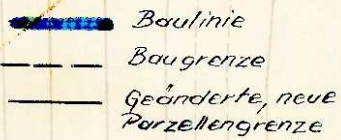 Baulinie
Baugrenze
Geänderte, neue
Parzellengrenze